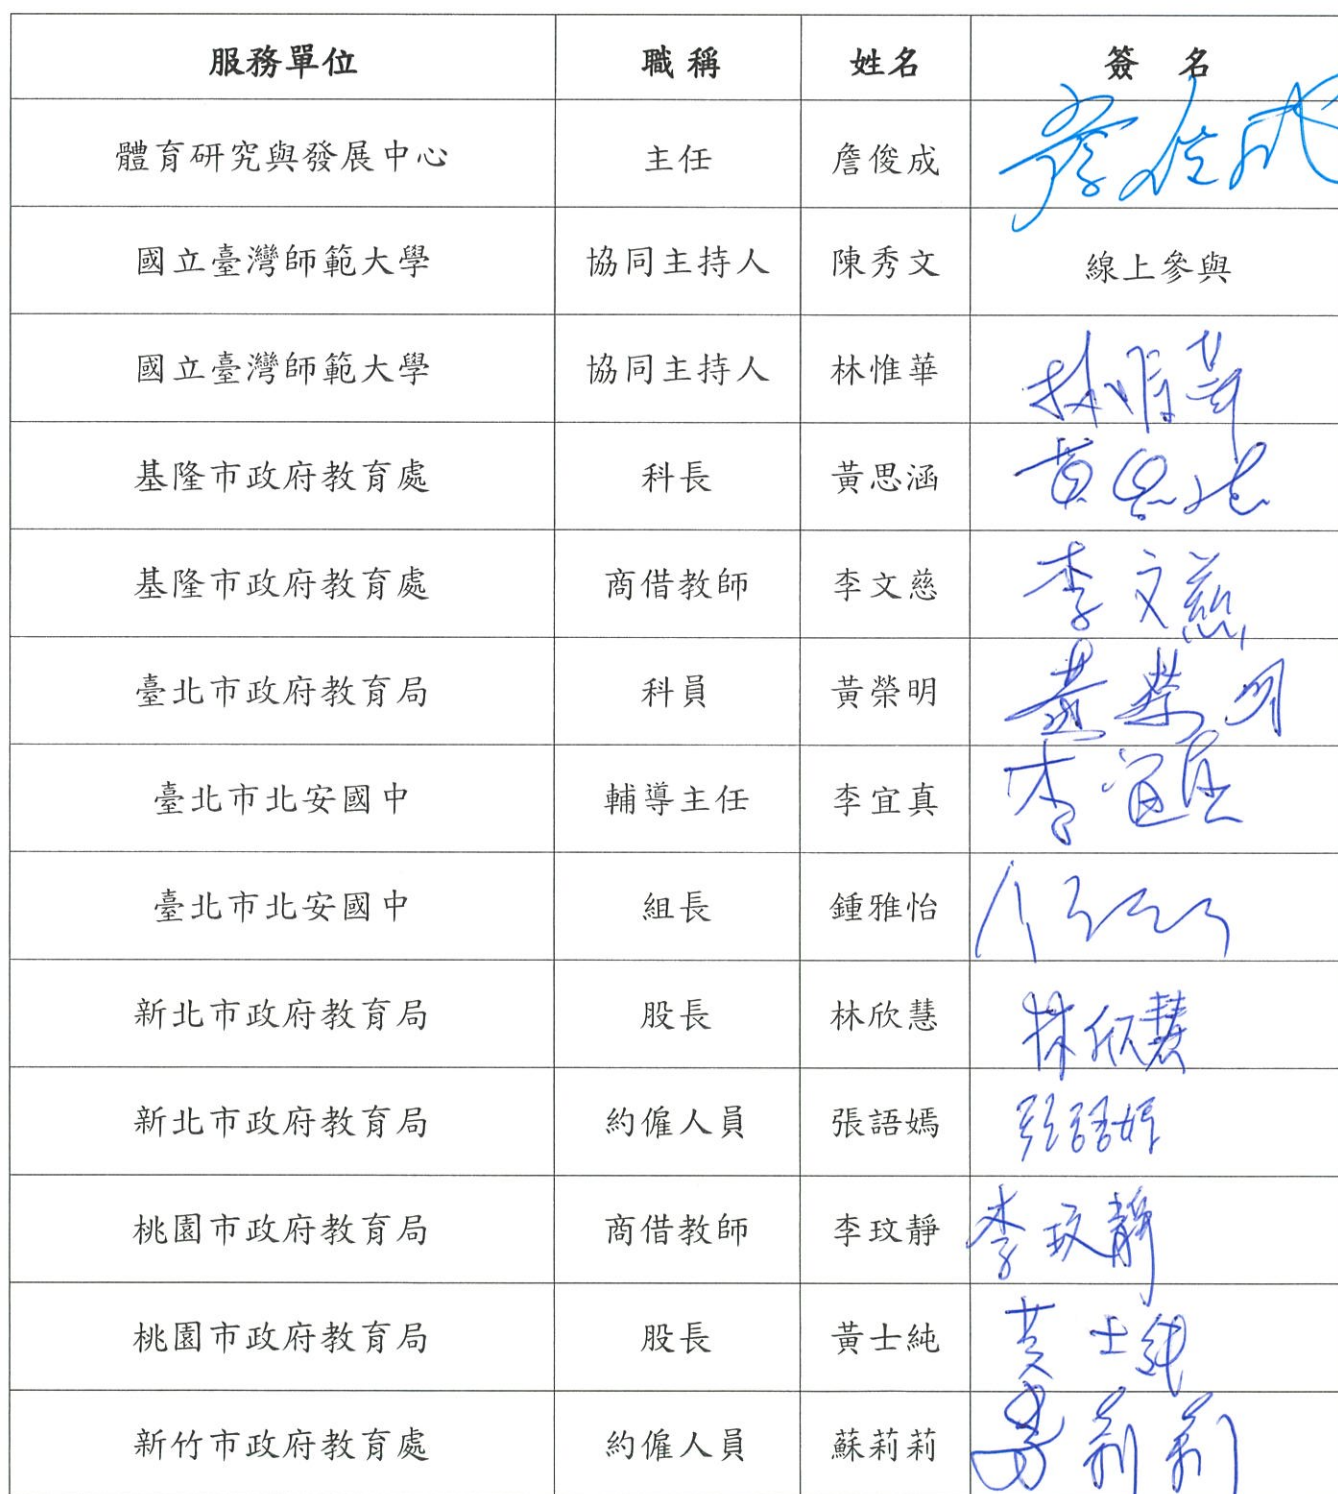 服務單位 職稱 姓名 簽名
體育研究與發展中心 主任 詹俊成 詹俊成
國立臺灣師範大學 協同主持人 陳秀文 線上參與
國立臺灣師範大學 協同主持人 林惟華 林惟華
基隆市政府教育處 科長 黃思涵 黃思涵
基隆市政府教育處 商借教師 李文慈 李文慈
臺北市政府教育局 科員 黃榮明 黃榮明
臺北市北安國中 輔導主任 李宜真 李宜真
臺北市北安國中 組長 鍾雅怡
新北市政府教育局 股長 林欣慧 林欣慧
新北市政府教育局 約僱人員 張語嫣 張語嫣
桃園市政府教育局 商借教師 李玟靜 李玟靜
桃園市政府教育局 股長 黃士純 黃士純
新竹市政府教育處 約僱人員 蘇莉莉 蘇莉莉